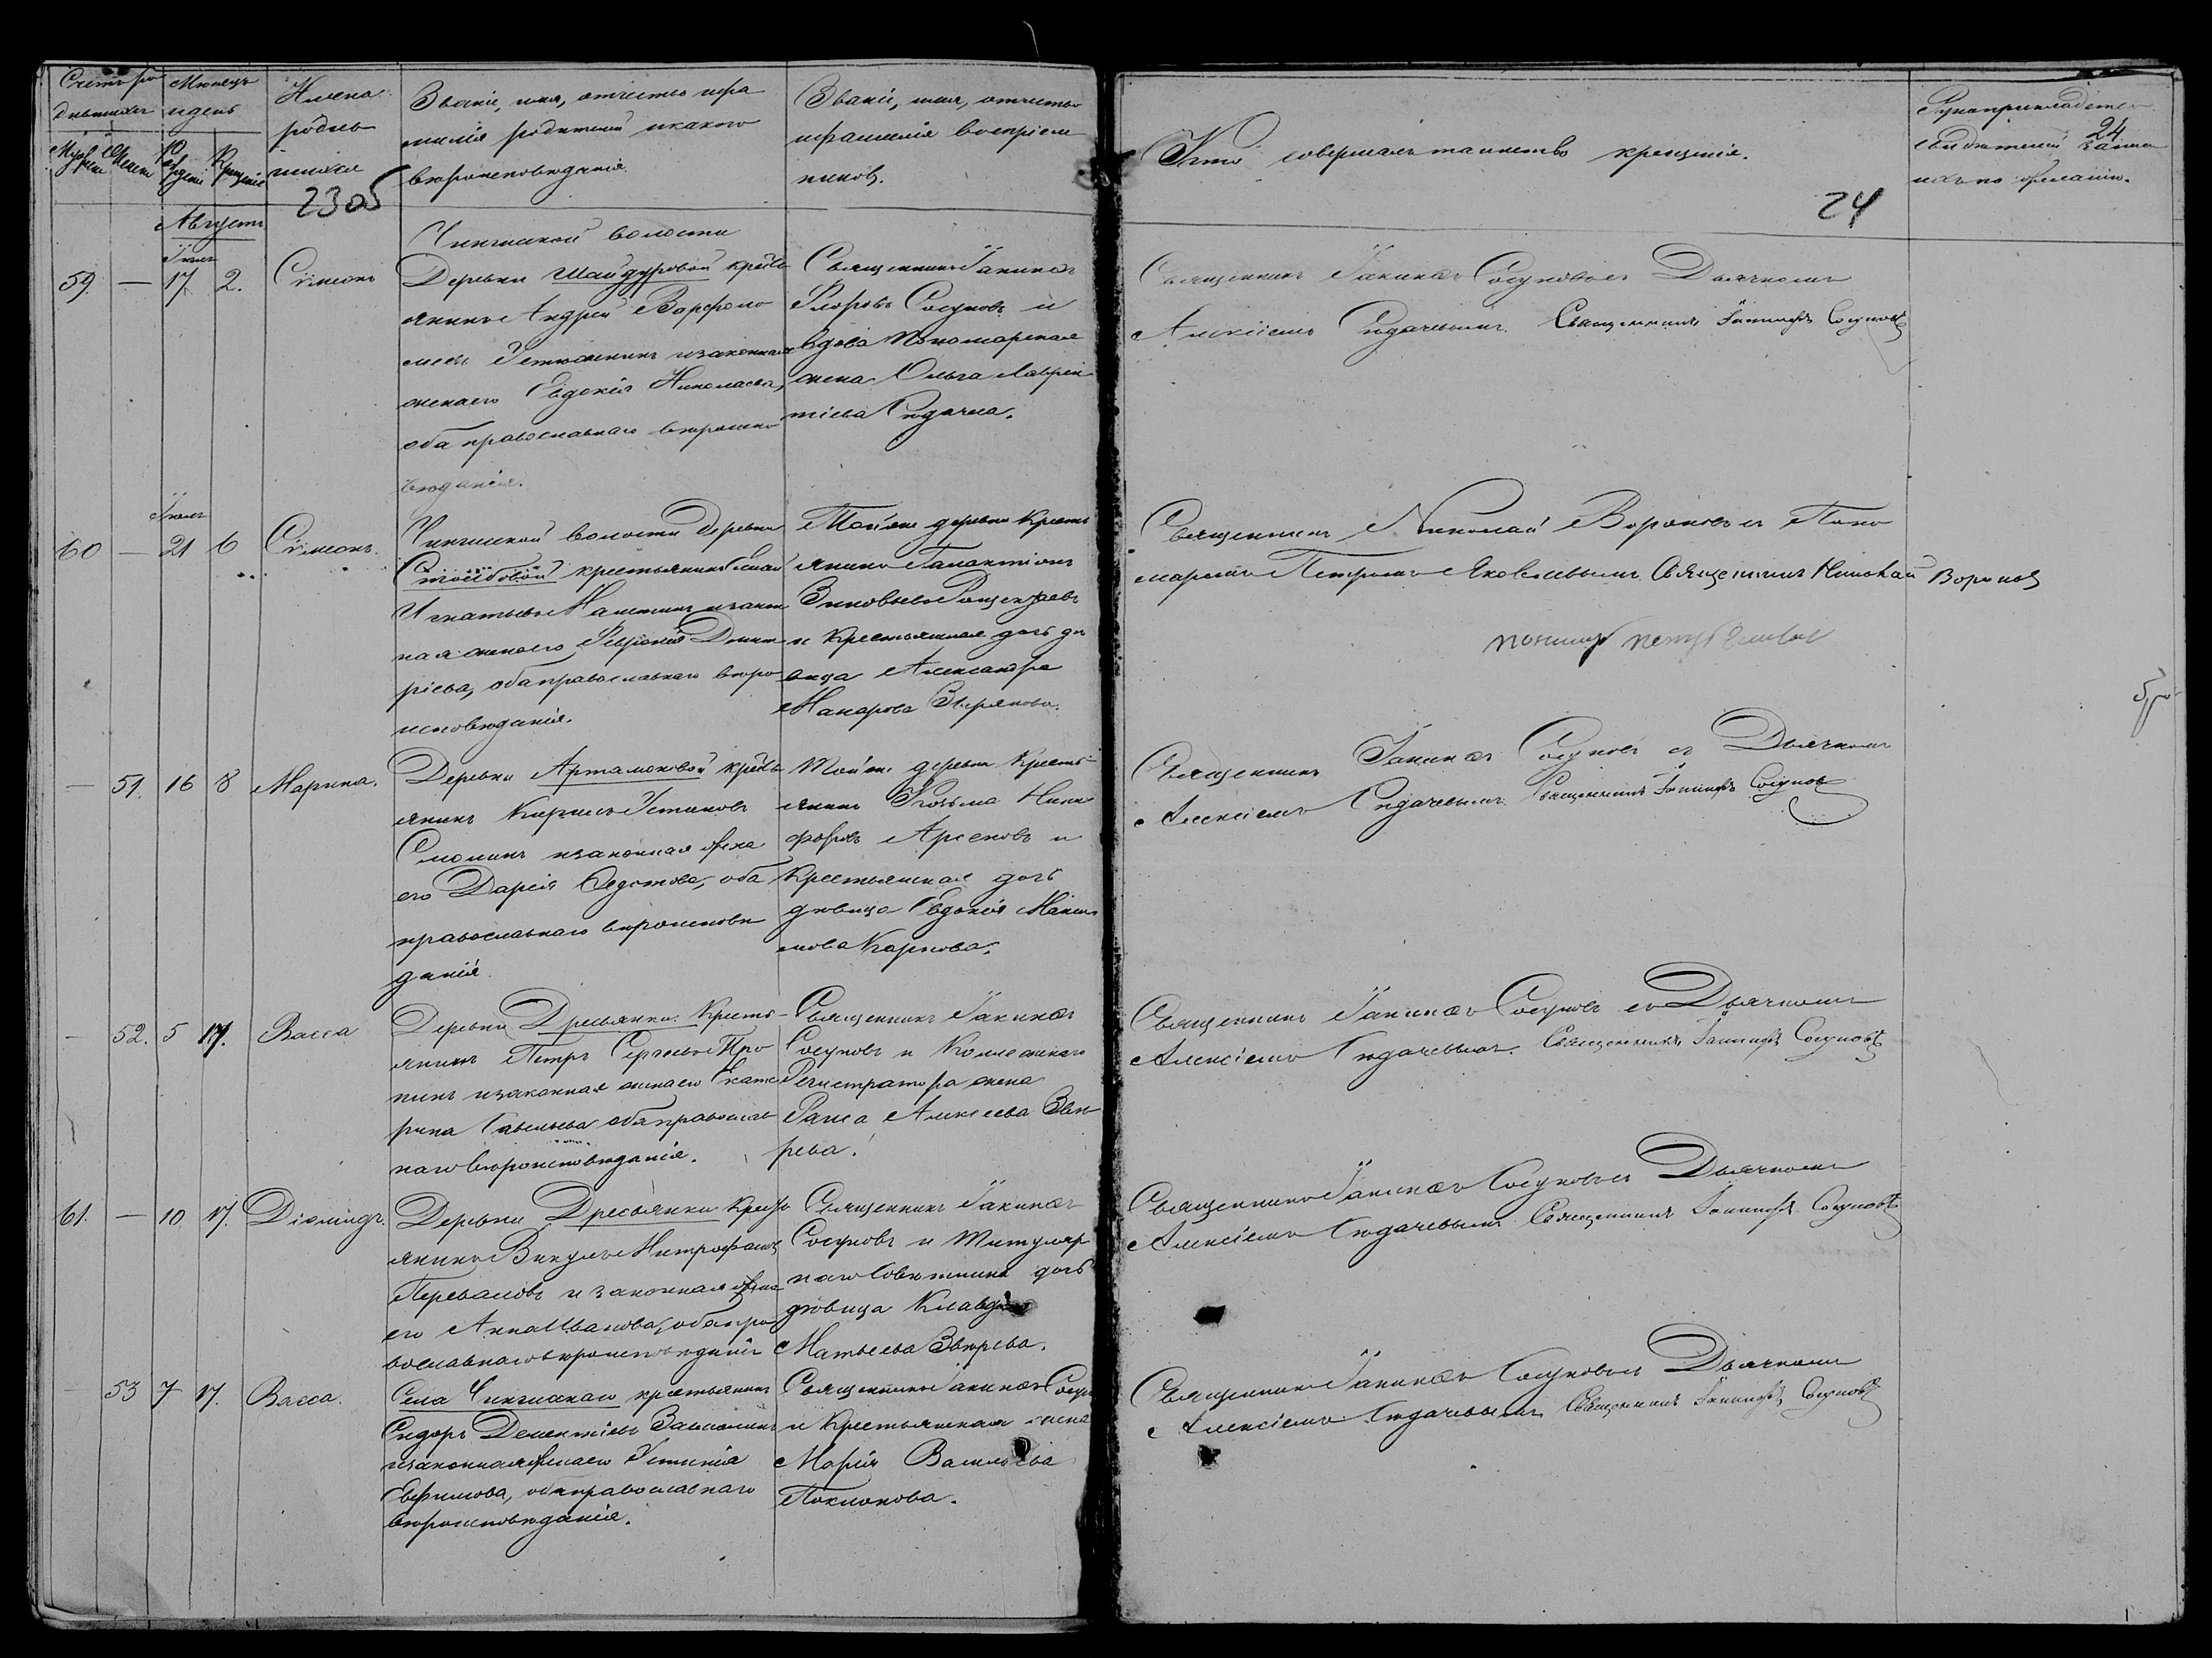 Счетъ ро
дившихся
Мужеска
Женска
Мѣсяцъ
и день
Рожденія
Крещенія
Имена
родив
шихся
2305
Званіе, имя, отчество и фа
милія родителей и какого
вѣроисповѣданія.
Званіе, имя, отчество
и фамилія воспріем
никовъ.
Кто совершалъ таинство крещенія.
24
Рукоприкладство
свидѣтелей записи
24
по желанію.
Августъ
Чингиской волости
Іюль
59. — 17 2. Сѵмеонъ
Деревни Шайдуровой кресть
янинъ Андрей Варфоло
меевъ Устюжанинъ и законная
жена его Евдокія Николаева,
оба православнаго вѣроиспо
вѣданія.
Священникъ Іакинѳъ
Флоровъ Сосуновъ и
вдова Пономарская
жена Ольга Лаврен
тіева Сѣдачева.
Священникъ Іакинѳъ Сосуновъ съ Дьячкомъ
Алексіемъ Сѣдачевымъ. Священникъ Іакинѳъ Сосуновъ
Іюль
60 — 21 6 Сѵмеонъ.
Чингиской волости Деревни
Столбовой крестьянинъ
Игнатьевъ и закон
ная жена его Дмит
ріева, оба православнаго вѣро
исповѣданія.
Той же деревни Кресть
янинъ Галактіонъ
Зиновьевъ
и Крестьянская дочь дѣ
вица Александра
Макарова Зырянова.
Священникъ Николай Вороновъ съ Поно
маремъ Петромъ Яковлевымъ. Священникъ Николай Вороновъ
— 51. 16 8 Марина.
Деревни Артамоновой кресть
янинъ Кирилъ Устиновъ
Смолинъ и законная жена
его Дарія Ѳедотова, оба
православнаго вѣроисповѣ
данія
Той же деревни Кресть
янинъ Козьма Ники
форовъ Арсеновъ и
Крестьянская дочь
дѣвица Евдокія Макси
мова Карпова.
Священникъ Іакинѳъ Сосуновъ съ Дьячкомъ
Алексіемъ Сѣдачевымъ. Священникъ Іакинѳъ Сосуновъ
— 52. 5 17. Васса
Деревни Дресвянки Кресть
янинъ Петръ Сергѣевъ Про
нинъ и законная жена его Екате
рина Савельева оба православ
наго вѣроисповѣданія.
Священникъ Іакинѳъ
Сосуновъ и Коллежскаго
Регистратора жена
Раиса Алексѣева Звѣ
рева.
Священникъ Іакинѳъ Сосуновъ съ Дьячкомъ
Алексіемъ Сѣдачевымъ. Священникъ Іакинѳъ Сосуновъ
61. — 10 17. Діомидъ.
Деревни Дресвянки Кресть
янинъ Викулъ Митрофановъ
Переваловъ и законная жена
его Анна Иванова, оба пра
вославнаго вѣроисповѣданія
Священникъ Іакинѳъ
Сосуновъ и Титуляр
наго Совѣтника дочь
дѣвица Клавдія
Матвѣева Звѣрева.
Священникъ Іакинѳъ Сосуновъ съ Дьячкомъ
Алексіемъ Сѣдачевымъ. Священникъ Іакинѳъ Сосуновъ
53 7 17. Васса.
Села Чингискаго крестьянинъ
Сидоръ Дементіевъ
и законная жена его Устинія
Евфимова, оба православнаго
вѣроисповѣданія.
Священникъ Іакинѳъ
и Крестьянская жена
Марія Васильева
Поклонова.
Священникъ Іакинѳъ Сосуновъ съ Дьячкомъ
Алексіемъ Сѣдачевымъ. Священникъ Іакинѳъ Сосуновъ